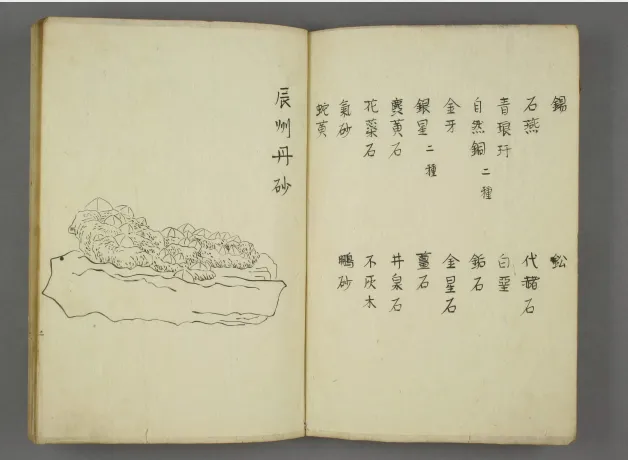 錫 鈆
石燕 代赭石
青琅玕 白堊
自然銅 二種
金牙 金星石
銀星 二種 薑石
井泉石
花蘂石 不灰木
氣砂 鵬砂
蛇黄
辰州丹砂